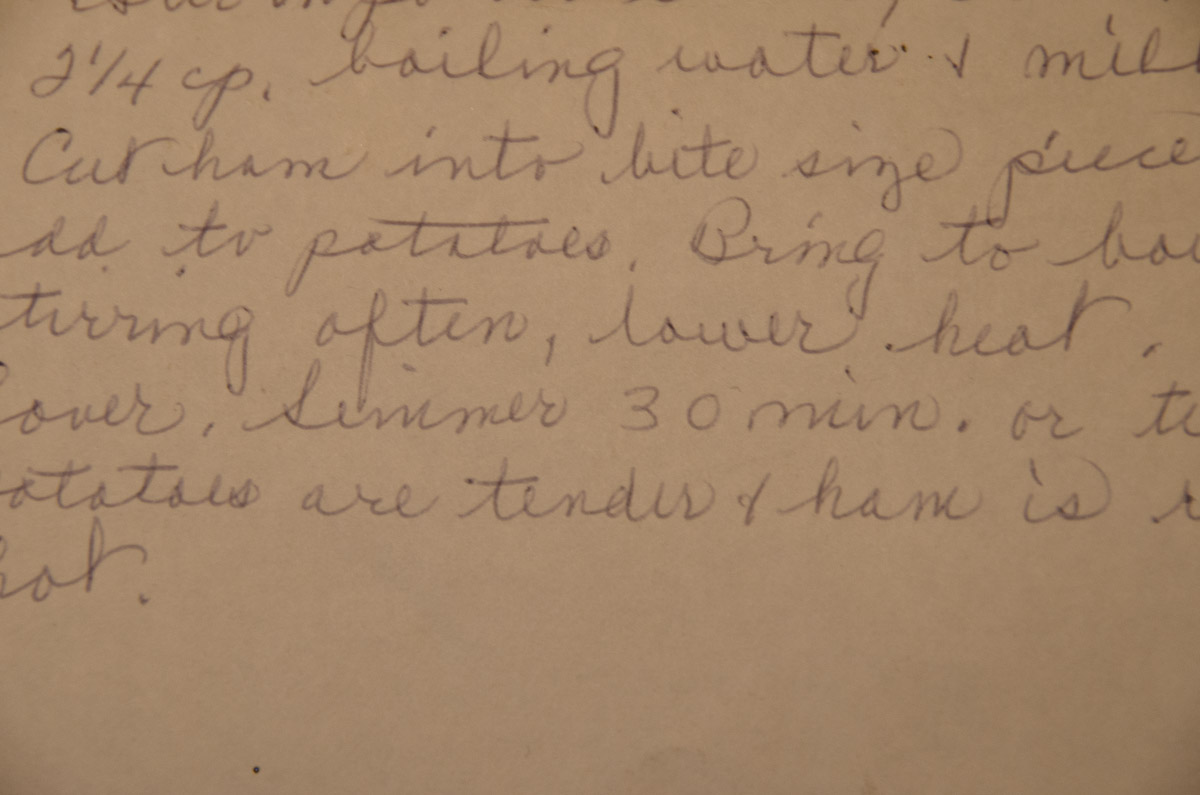 2 1/4 cp. boiling water & mil
Cut ham into bite size piece
dd to potatoes. Bring to boi
tirring often, lower heat.
over. Simmer 30 min. or
otatoes are tender & ham is
hot.